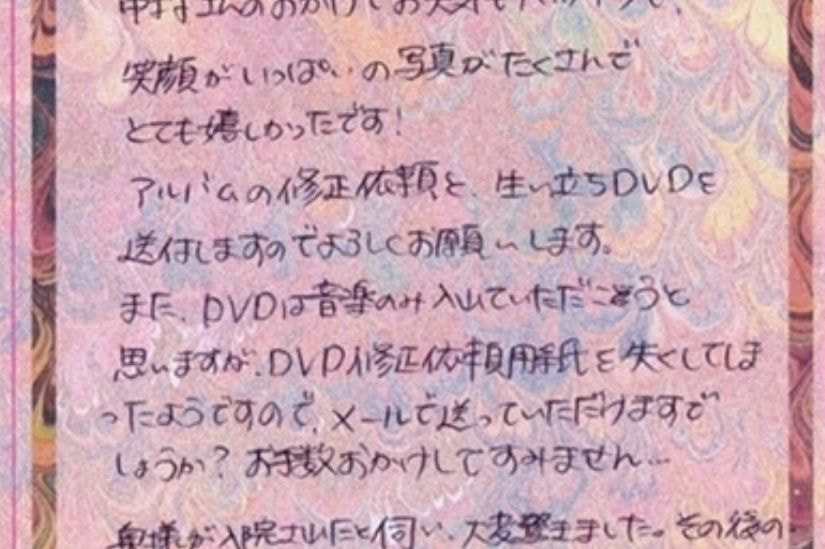 笑顔がいっぱいの写真がたくさんで
とても嬉しかったです！
アルバムの修正依頼と、生い立ちDVDを
送付しますのでよろしくお願いします。
また、DVDは音楽のみ入れていただこうと
思いますが、DVD修正依頼用紙を失くしてしま
ったようですので、メールで送っていただけますで
しょうか？お手数おかけしてすみません…
奥様が入院されたと伺い、大変驚きました。その後の